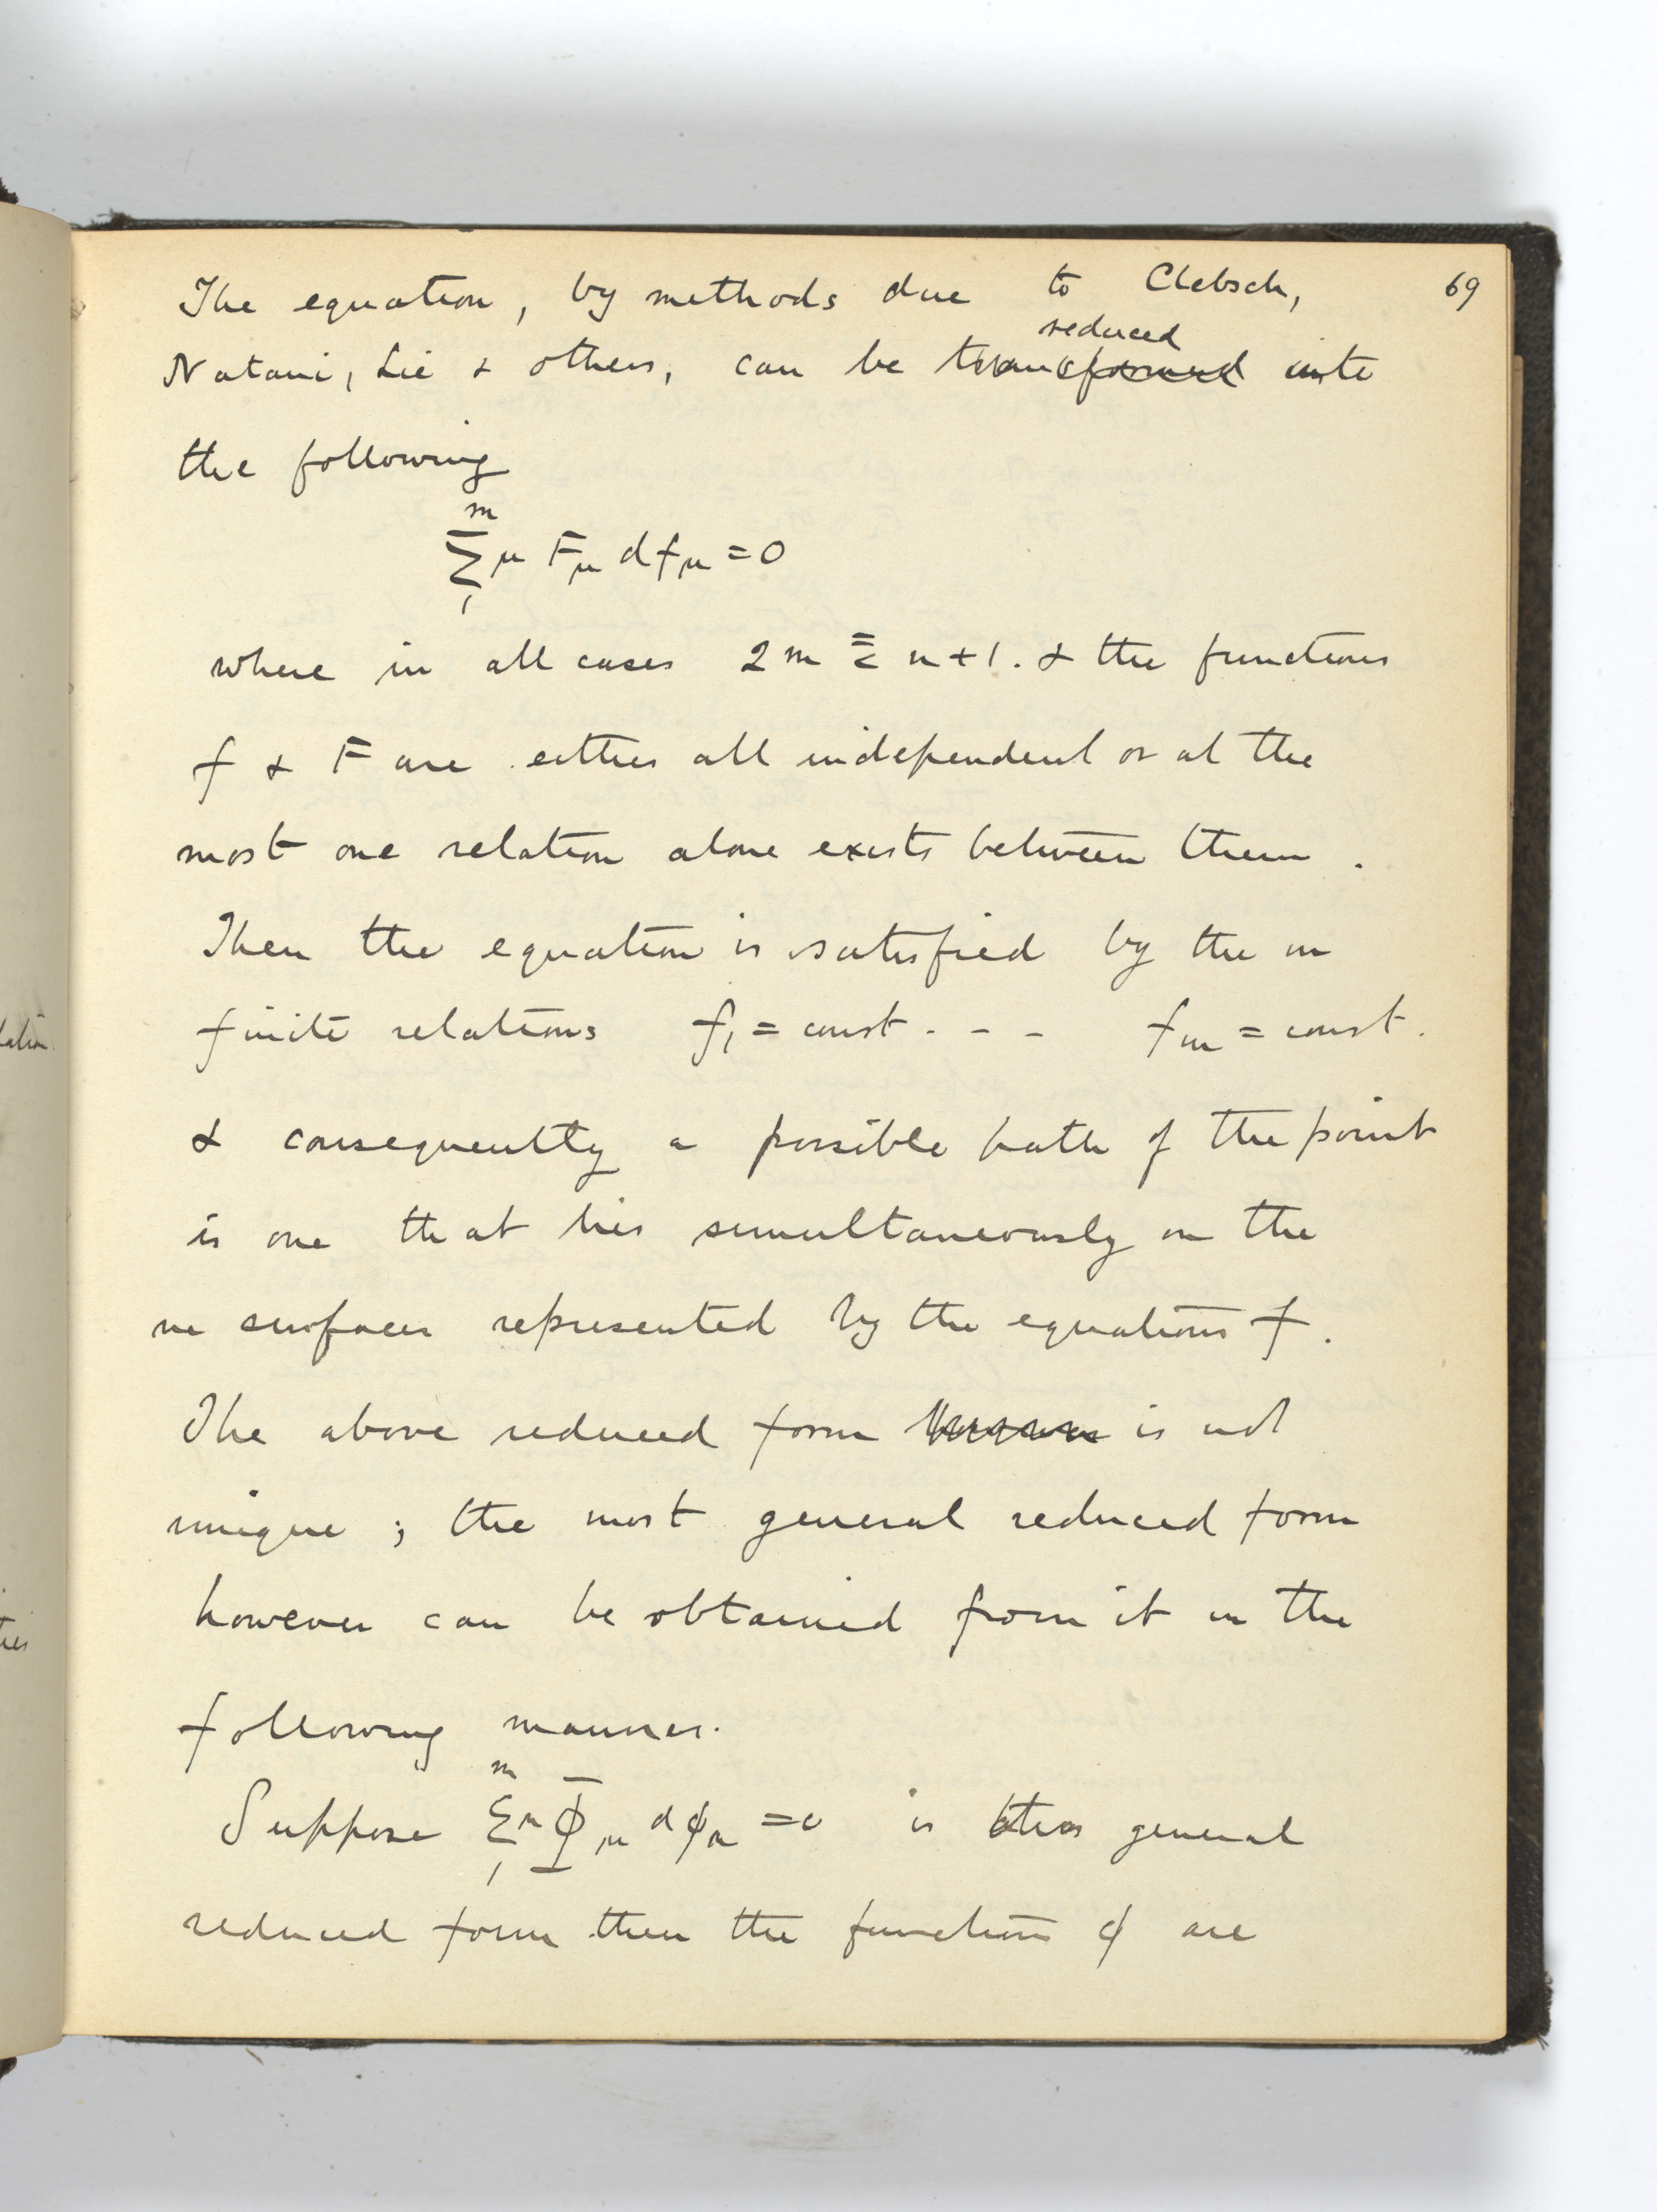 The equation, by methods due to Clebsch, 69
reduced
Natani, Lie & others, can be transformed into
the following
m
Σμ Fμ dfμ = 0
1
where in all cases 2m ≦ n+1. & the functions
f & F are either all independent or at the
most one relation alone exists between them.
Then the equation is satisfied by the m
finite relations f₁ = const. - - fm = const.
& consequently a possible path of the point
is one that lies simultaneously on the
m surfaces represented by the equations f.
The above reduced form is not
unique; the most general reduced form
however can be obtained from it in the
following manner.
m
Suppose Σμ Φμ dϕμ = 0 is general
1
reduced form then the functions ϕ are
lation
ties